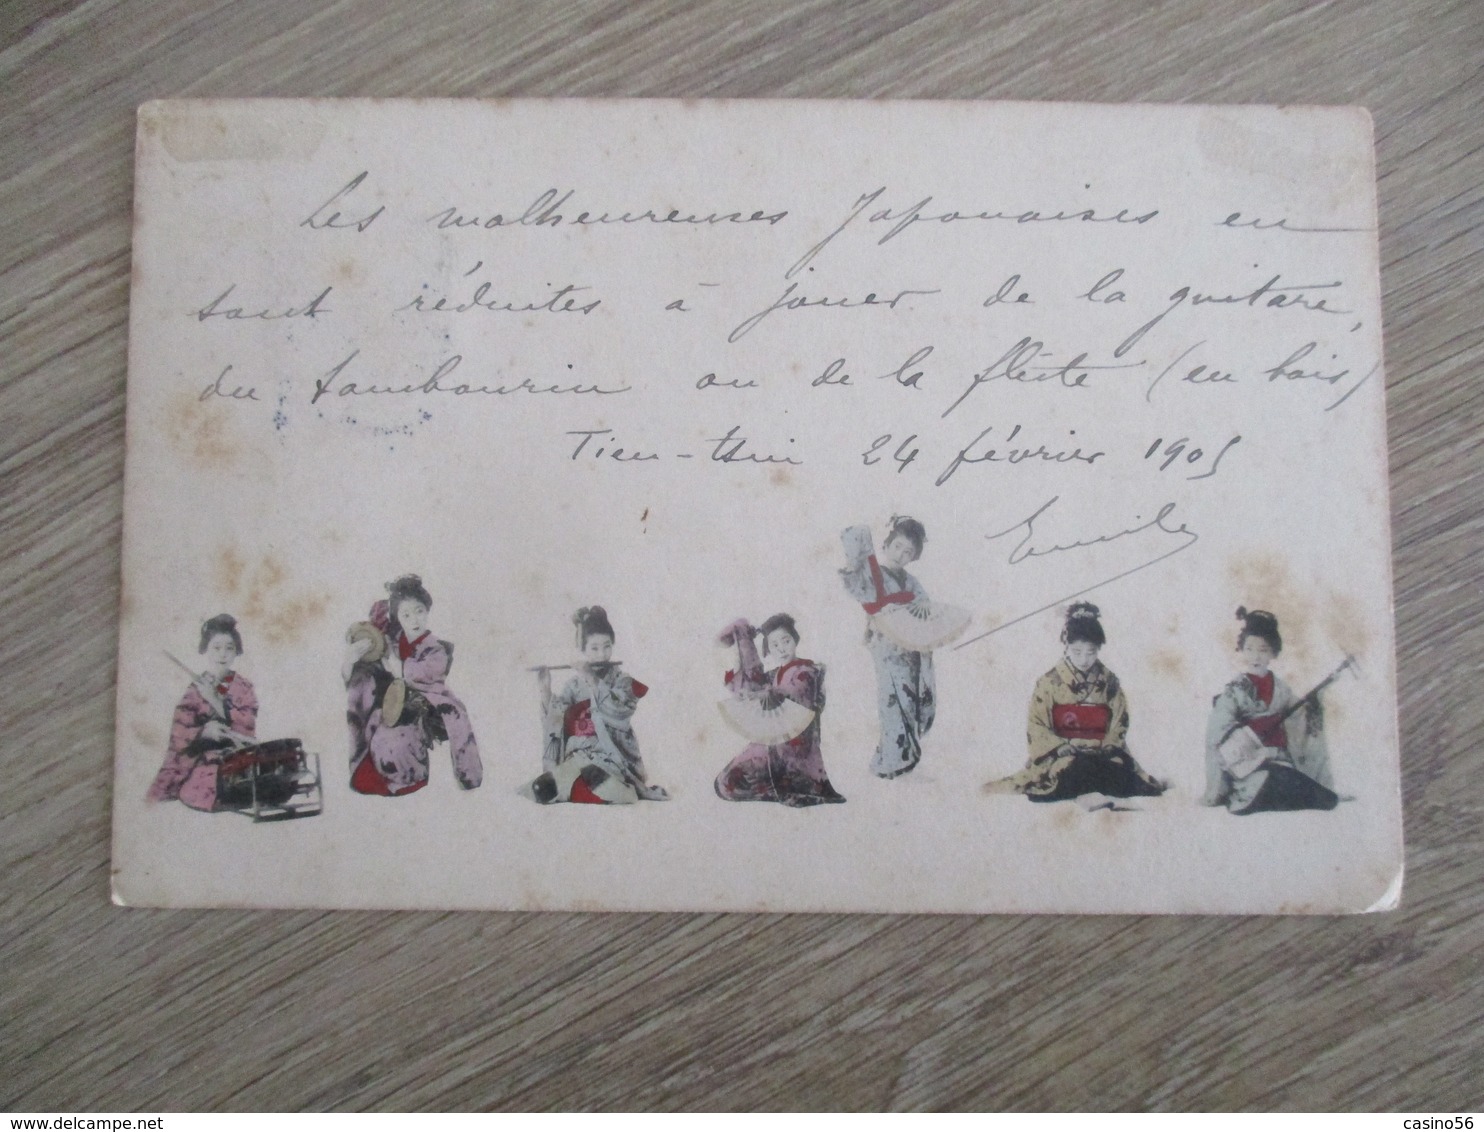 Les malheureuses Japonaises en
sont réduites à jouer de la guitare,
du tambourin ou de la flûte (en bois)
Tien-tsin 24 février 1905
Emile
delcampe.net
casino56